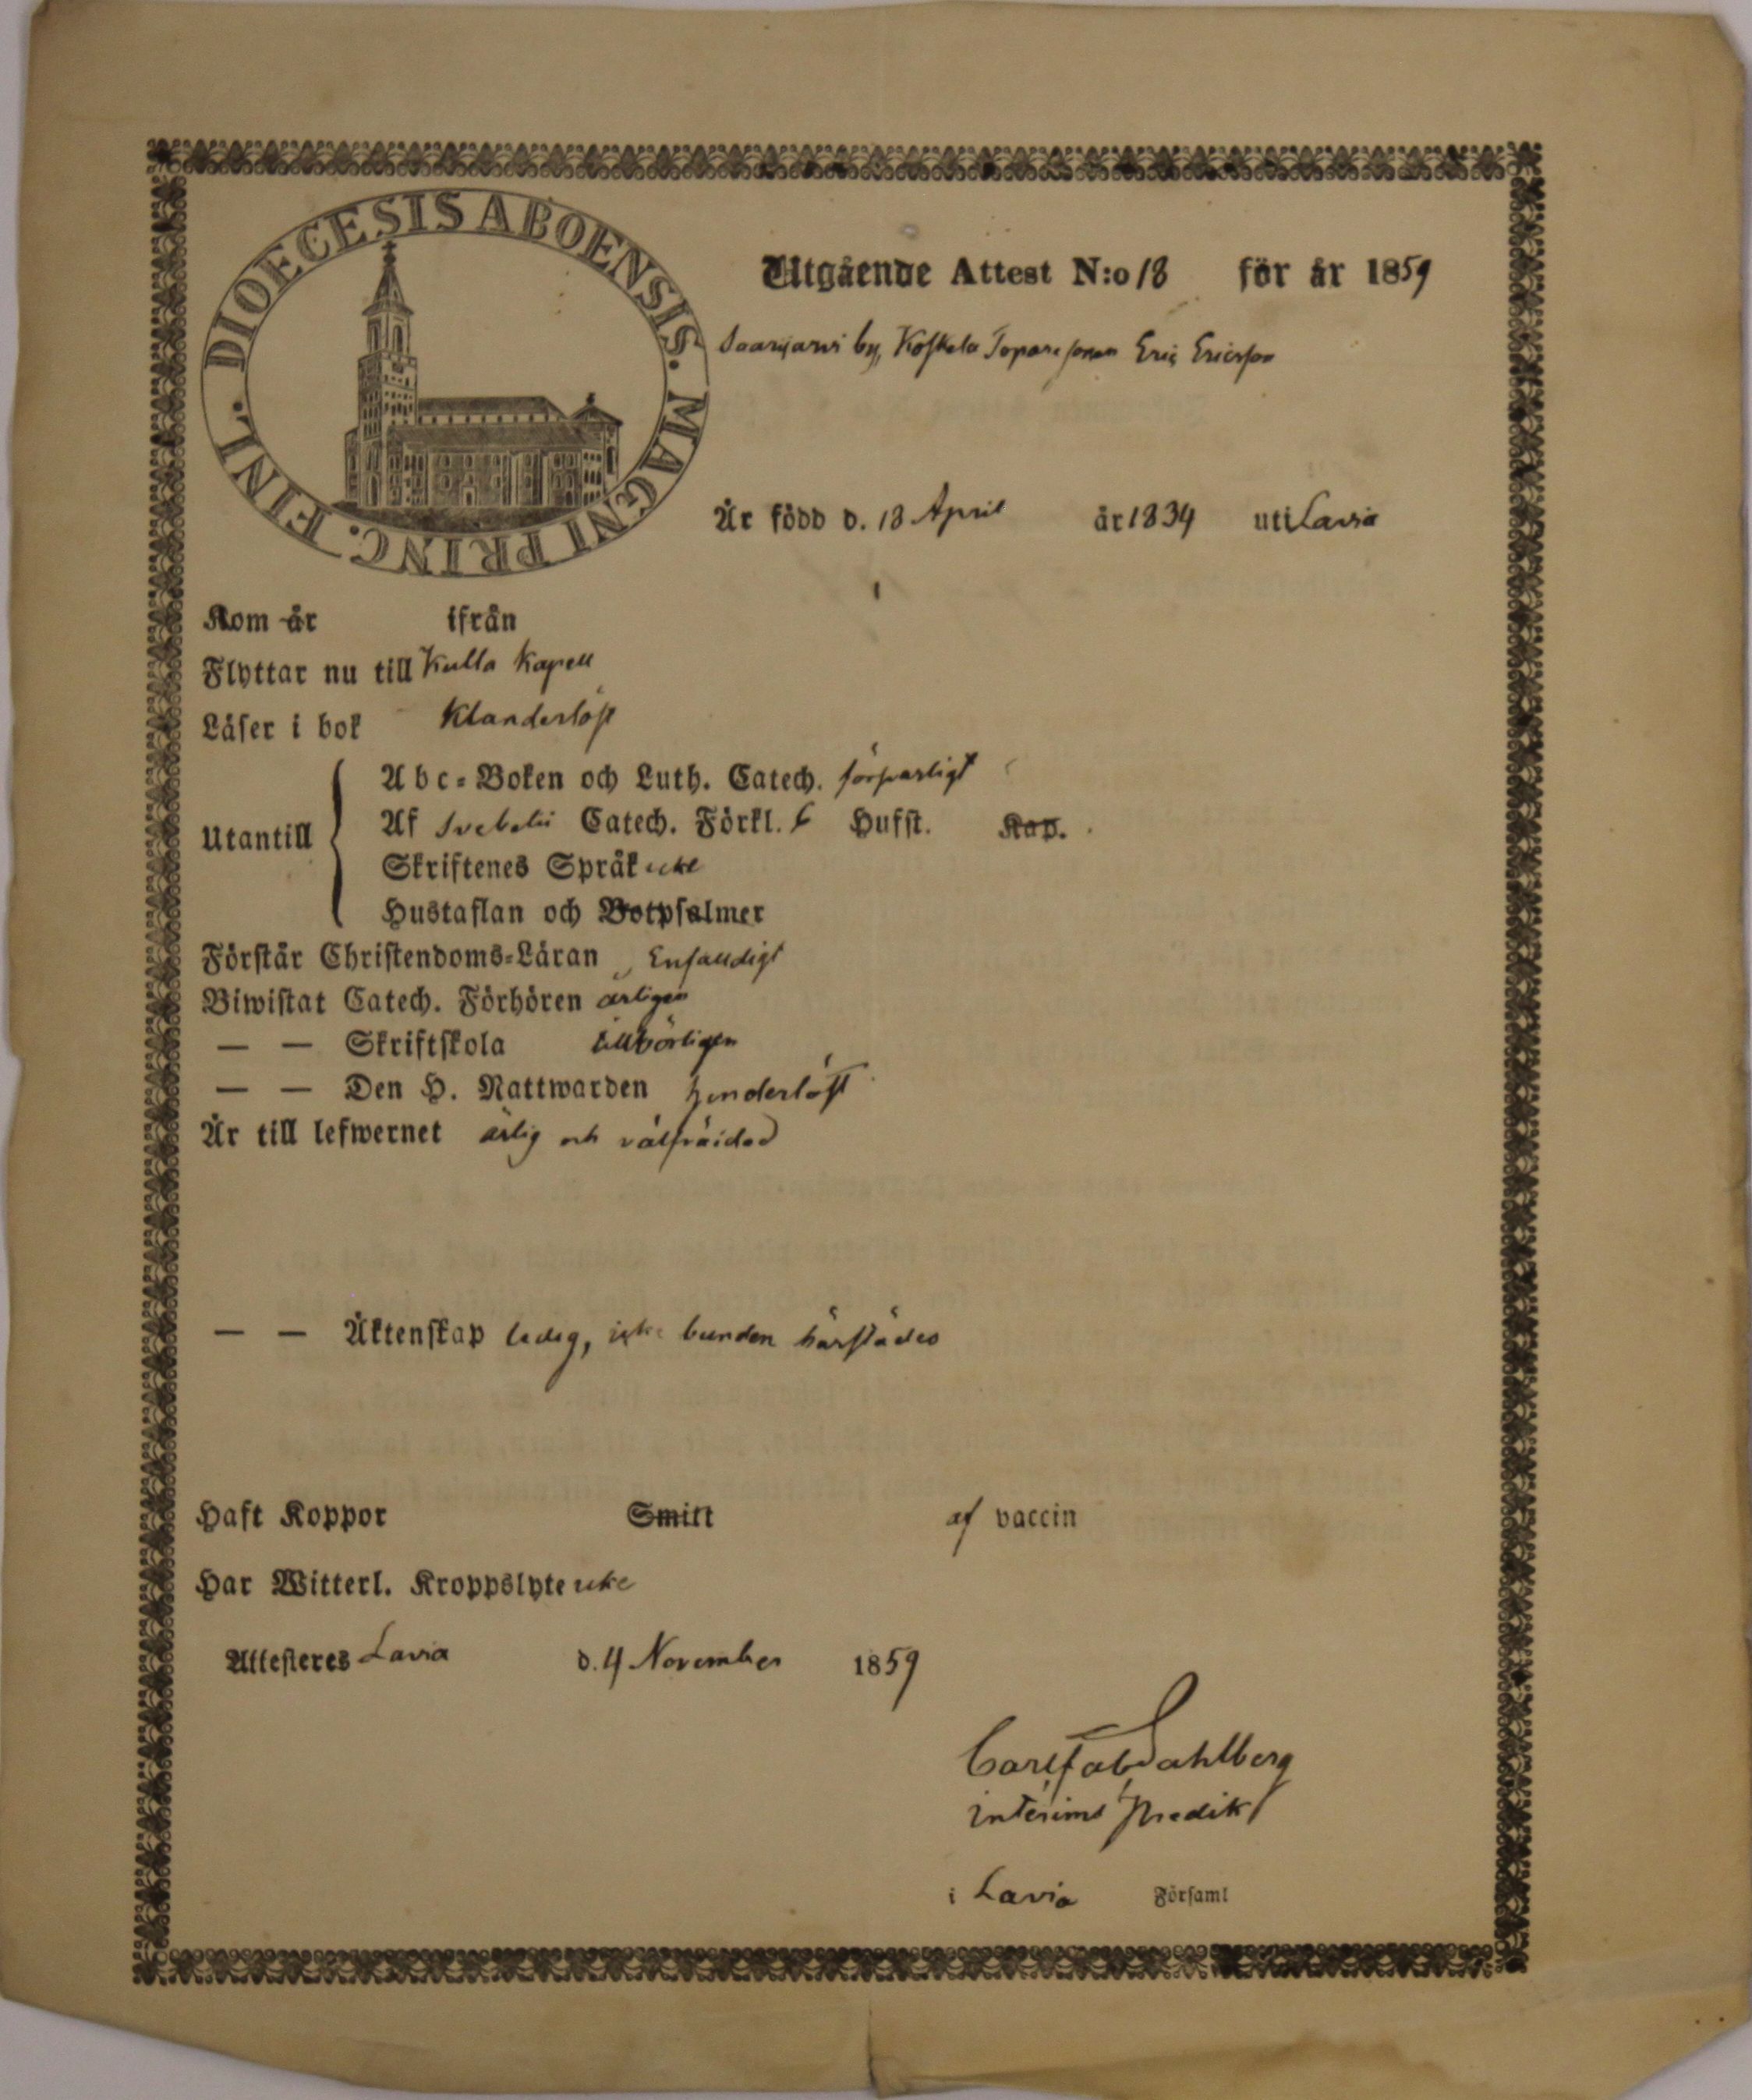 DIOECESIS ABOENSIS. MAGNI PRINC. FINL.
Utgående Attest N:o 18 för år 1859
Saarijärvi by, Koskela Torparesonen Eric Ericsson
Är född d. 18 April år 1834 uti Lavia
Kom år ifrån
Flyttar nu till Kulla Kapell
Läser i bok Klanderlöst
Utantill
Abc-Boken och Luth. Catech. försvarligt
Af Svebelii Catech. Förkl. 6 Hufst. Kap.
Skriftenes Språk icke
Hustaflan och Botpsalmer
Förstår Christendoms-Läran Enfaldigt
Biwistat Catech. Förhören årligen
— — Skriftskola tillbörligen
— — Den H. Nattwarden hinderlöst
Är till lefwernet ärlig och välfräjdad
— — Äktenskap ledig, icke bunden härstädes
Haft Koppor Smitt af vaccin
Har Witterl. Kroppslyte icke
Attesteres Lavia d. 4 November 1859
Carl Fab Dahlberg
interims Predik
i Lavia Församl